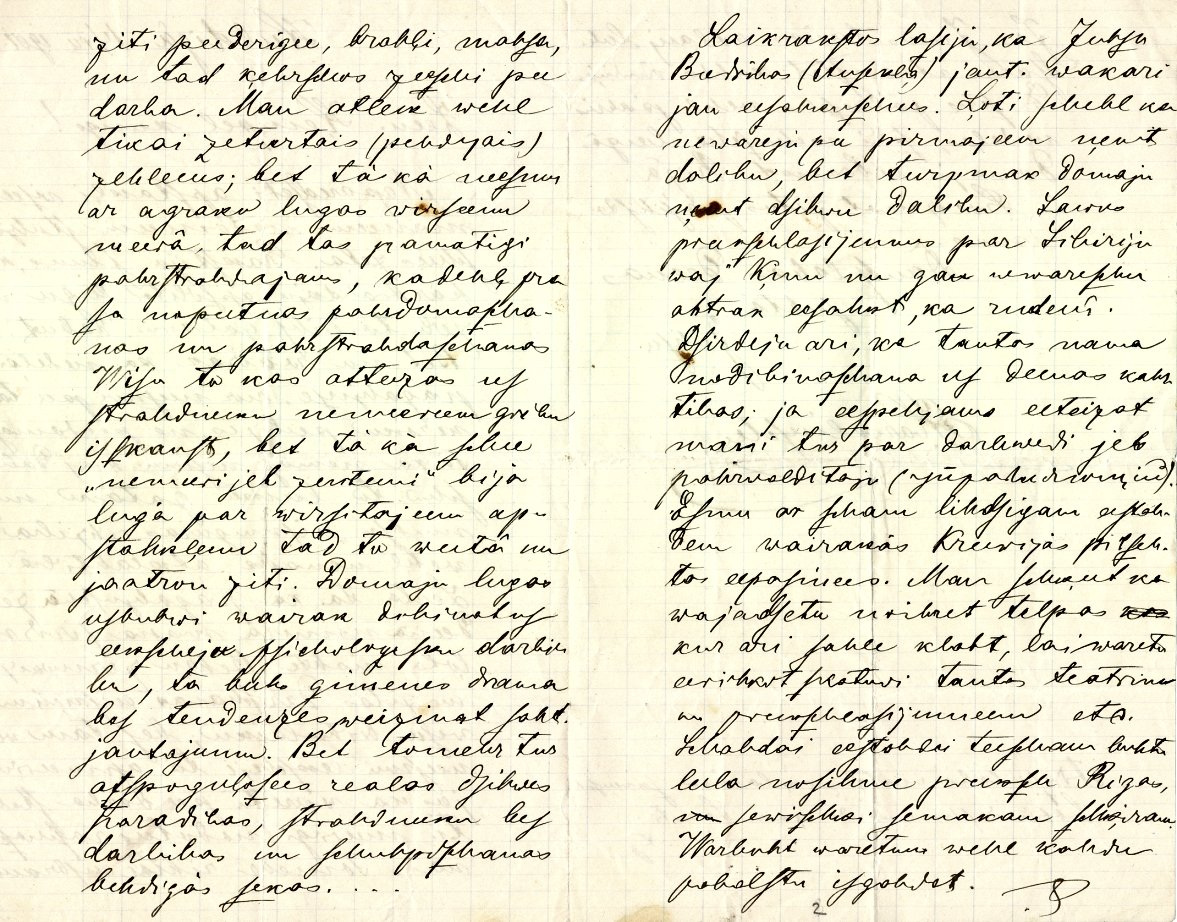 ziti peederigee, brahļi, mahsa,
nu tad ķehrschos zeeschi pee
darba. Man atleek wehl
tikai zeturtais (pehdejais)
zehleens; bet tā kā neesmu
ar agrako lugas wirseenu
meerā, tad tas pamatigi
pahrstrahdajams, kadehļ pra-
sa nopeetnas pahrdomascha-
nas un pahrstrahdaschanas
Wisu to kas atteezas us
strahdneeku nemeereem gribu
isskaust, bet tā kā schee
„nemeeri jeb zenteeni" bija
lugā par wirsitajeem ap-
stahkļeem tad to weetā nu
jaatron ziti. Domaju lugas
usbuhwi wairak dibinat us
eekschejo psichologisku darbi-
bu, ta buhs gimenes drama
bes tendenzes, weizinat soht.
jautajumu. Bet tomehr tur
atspoguļosees realas dsihwes
paradibas, strahdneeku bes
darbibas un schuhposchanas
behdigās sekas. . . .
Laikrakstos lasiju, ka Juhsu
Beedribas (Ausekļa) jaut. wakari
jau eesahkuschees. Ļoti schehl ka
newareju pee pirmajeem ņemt
dalibu, bet turpmak domaju
ņemt dsihwu dalibu. Sawus
preekschlasijumus par Sibiriju
waj Ķinu nu gan newareschu
ahtrak eesahkt, ka rudenī.
Dsirdeju ari, ka tautas nama
nodibinaschana us deenas kahr-
tibas; ja eespehjams eeteizat
mani tur par darbwedi jeb
pahrwalditaju
Esmu ar scham lihdsigam eestah-
dem wairakās Kreewijas pilseh-
tas eepasinees. Man schķeet ka
wajadsetu noihret telpas
kur ari sahle klaht, lai waretu
eerihkot skatuwi tautas teatrim
un preekschlasijumeem etc.
Schahdai eestahdei teescham buhtu
leela nosihme preeksch Rigas,
sewischķi semakam schķiram.
Warbuht waretum wehl kahdu
pabalstu isgahdat.
2